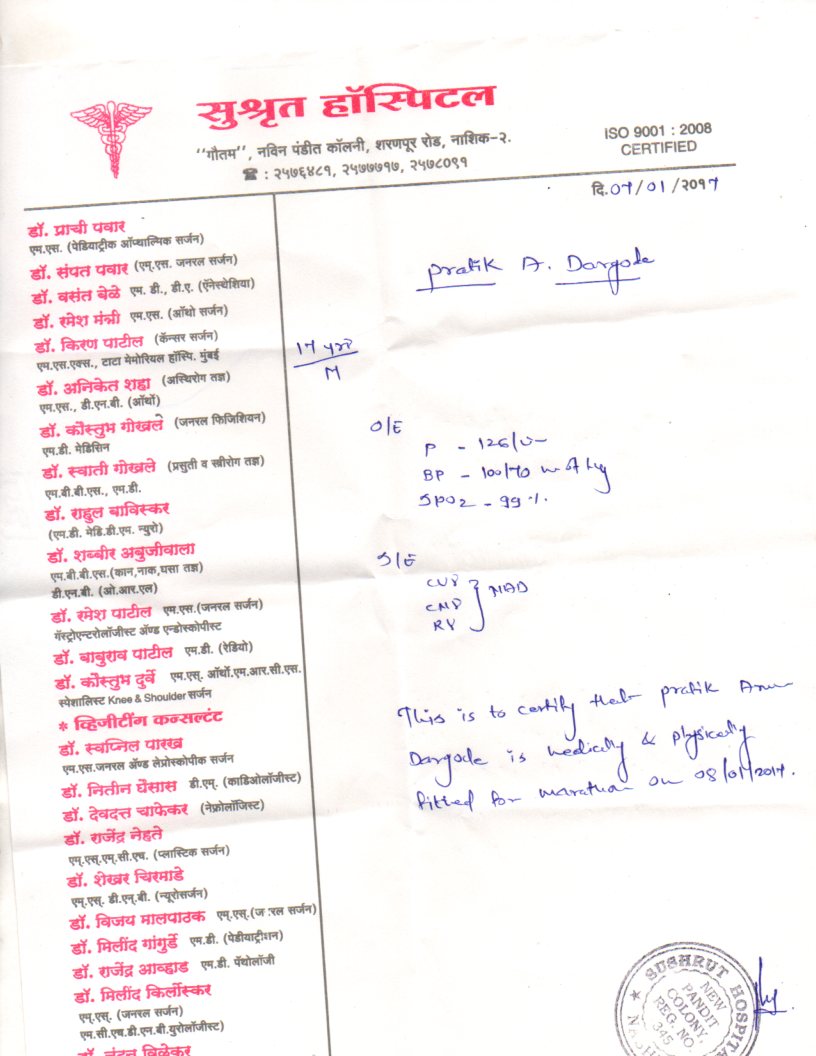 सुश्रृत हॉस्पिटल
"गौतम", नविन पंडीत कॉलनी, शरणपूर रोड, नाशिक-२.
☎ : २५७६४८१, २५७७७१७, २५७८०९१
ISO 9001 : 2008
CERTIFIED
दि.07/01/२०१7
डॉ. प्राची पवार
एम.एस. (पेडियाट्रीक ऑप्थाल्मिक सर्जन)
डॉ. संपत पवार (एम्.एस. जनरल सर्जन)
डॉ. वसंत बेळे एम. डी., डी.ए. (ऍनेस्थेशिया)
डॉ. रमेश मंत्री एम.एस. (ऑर्थो सर्जन)
डॉ. किरण पाटील (कॅन्सर सर्जन)
एम.एस.एक्स., टाटा मेमोरियल हॉस्पि. मुंबई
डॉ. अनिकेत शहा (अस्थिरोग तज्ञ)
एम.एस., डी.एन.बी. (ऑर्थो)
डॉ. कौस्तुभ गोखले (जनरल फिजिशियन)
एम.डी. मेडिसिन
डॉ. स्वाती गोखले (प्रसुती व स्त्रीरोग तज्ञ)
एम.बी.बी.एस., एम.डी.
डॉ. राहुल बाविस्कर
(एम.डी. मेडि.डी.एम. न्युरो)
डॉ. शब्बीर अबुजीवाला
एम.बी.बी.एस.(कान,नाक,घसा तज्ञ)
डी.एन.बी. (ओ.आर.एल)
डॉ. रमेश पाटील एम.एस.(जनरल सर्जन)
गॅस्ट्रोएन्टरोलॉजीस्ट ॲण्ड एन्डोस्कोपीस्ट
डॉ. बाबुराव पाटील एम.डी. (रेडियो)
डॉ. कौस्तुभ दुर्वे एम.एस्. ऑर्थो.एम.आर.सी.एस.
स्पेशालिस्ट Knee & Shoulder सर्जन
* व्हिजीटींग कन्सल्टंट
डॉ. स्वप्निल पारख
एम.एस.जनरल अ‍ॅण्ड लेप्रोस्कोपीक सर्जन
डॉ. नितीन घैसास डी.एम्. (कार्डिओलॉजीस्ट)
डॉ. देवदत्त चाफेकर (नेफ्रोलॉजिस्ट)
डॉ. राजेंद्र नेहते
एम्.एस्.एम्.सी.एच. (प्लास्टिक सर्जन)
डॉ. शेखर चिरमाडे
एम्.एस्. डी.एन्.बी. (न्यूरोसर्जन)
डॉ. विजय मालपाठक एम्.एस्.(जनरल सर्जन)
डॉ. मिलींद गांगुर्डे एम.डी. (पेडीयाट्रीशन)
डॉ. राजेंद्र आव्हाड एम.डी. पॅथोलॉजी
डॉ. मिलींद किर्लोस्कर
एम्.एस्. (जनरल सर्जन)
एम.सी.एच.डी.एन.बी.युरोलॉजीस्ट)
डॉ. नंदन विळेकर
Pratik A. Dargode
17 yrs
M
O/E
P - 126/
BP - 100/70 mm of Hg
SPO2 - 99 %.
S/E
CVS
CNS } NAD
RS
This is to certify that pratik Arun
Dargode is medically & physically
fitted for marathon on 08/01/2017.
SUSHRUT HOSPITAL
NEW
PANDIT
COLONY,
REG. NO.
345